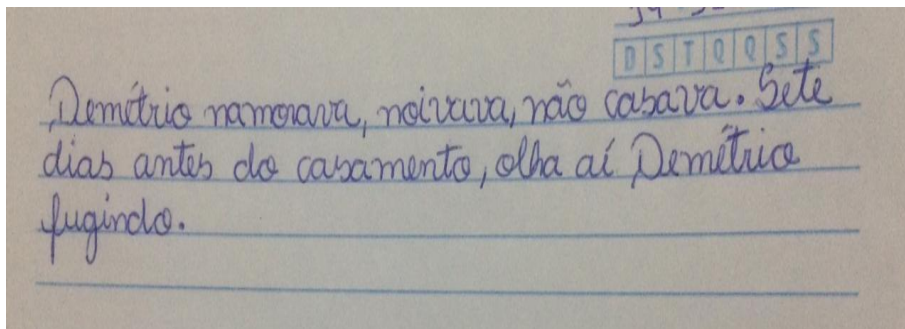 D S T Q Q S S
Demétrio namorava, noivava, não casava. Sete
dias antes do casamento, olha aí Demétrio
fugindo.